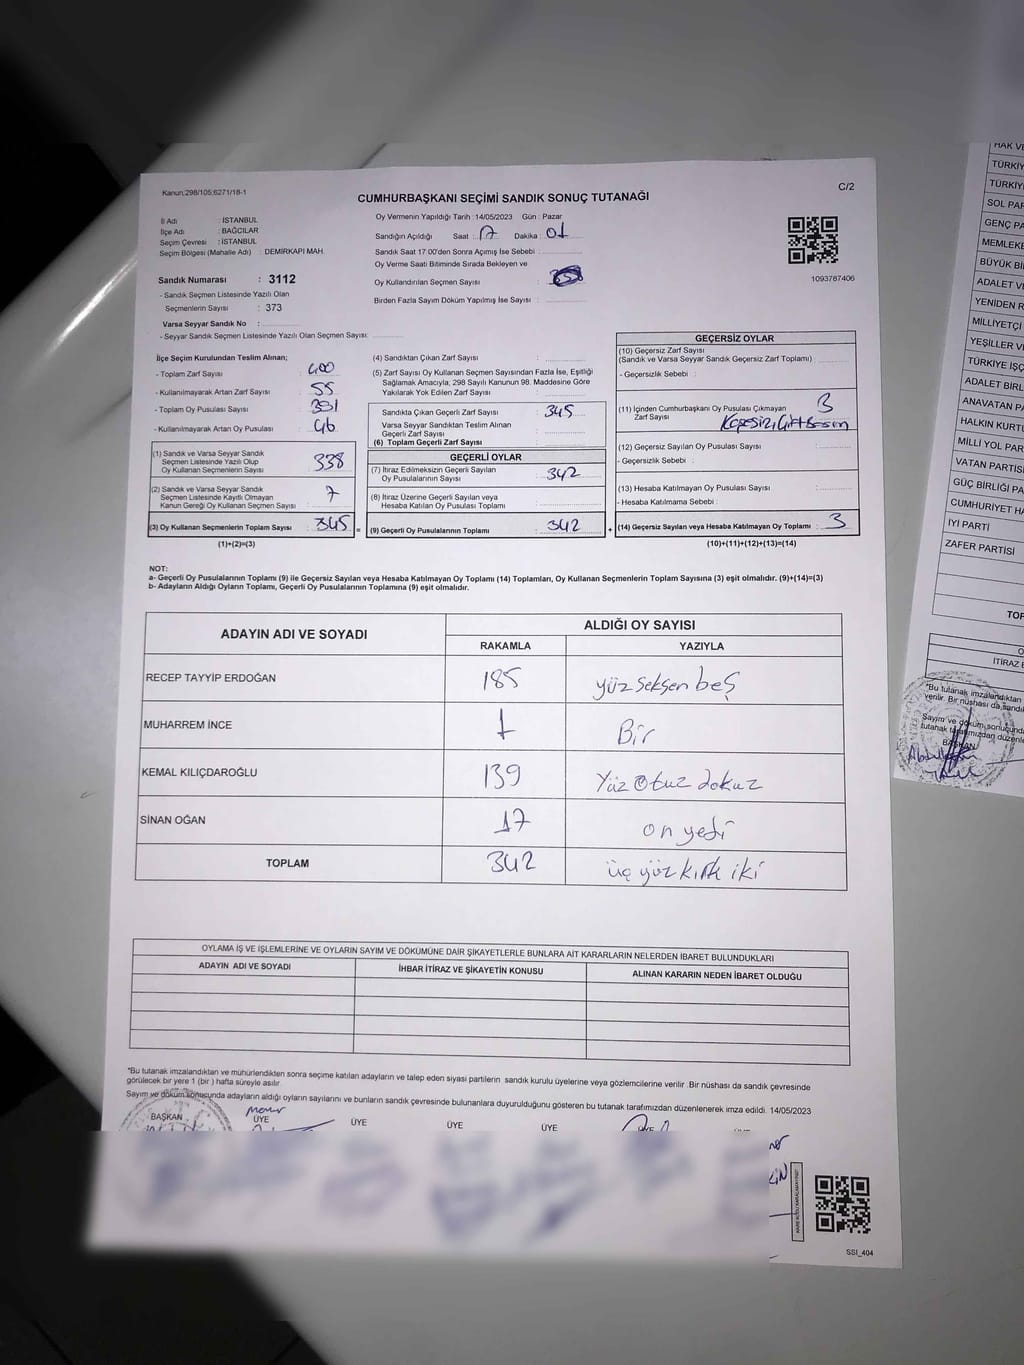 Kanun;298/105;6271/18-1
C/2
CUMHURBAŞKANI SEÇİMİ SANDIK SONUÇ TUTANAĞI
İl Adı : İSTANBUL
İlçe Adı : BAĞCILAR
Seçim Çevresi : İSTANBUL
Seçim Bölgesi (Mahalle Adı) : DEMİRKAPI MAH.
Sandık Numarası : 3112
- Sandık Seçmen Listesinde Yazılı Olan
Seçmenlerin Sayısı : 373
Varsa Seyyar Sandık No :
- Seyyar Sandık Seçmen Listesinde Yazılı Olan Seçmen Sayısı:
Oy Vermenin Yapıldığı Tarih :14/05/2023 Gün : Pazar
Sandığın Açıldığı Saat : 17 Dakika : 01
Sandık Saat 17:00'den Sonra Açılmış İse Sebebi :
Oy Verme Saati Bitiminde Sırada Bekleyen ve
Oy Kullandırılan Seçmen Sayısı :
Birden Fazla Sayım Döküm Yapılmış İse Sayısı :
1093787406
İlçe Seçim Kurulundan Teslim Alınan;
- Toplam Zarf Sayısı : 400
- Kullanılmayarak Artan Zarf Sayısı : 55
- Toplam Oy Pusulası Sayısı : 391
- Kullanılmayarak Artan Oy Pusulası : 46
(1) Sandık ve Varsa Seyyar Sandık
Seçmen Listesinde Yazılı Olup
Oy Kullanan Seçmenlerin Sayısı : 338
(2) Sandık ve Varsa Seyyar Sandık
Seçmen Listesinde Kayıtlı Olmayan
Kanun Gereği Oy Kullanan Seçmen Sayısı : 7
(3) Oy Kullanan Seçmenlerin Toplam Sayısı : 345
(1)+(2)=(3)
(4) Sandıktan Çıkan Zarf Sayısı :
(5) Zarf Sayısı Oy Kullanan Seçmen Sayısından Fazla İse, Eşitliği
Sağlamak Amacıyla, 298 Sayılı Kanunun 98. Maddesine Göre
Yakılarak Yok Edilen Zarf Sayısı :
Sandıkta Çıkan Geçerli Zarf Sayısı : 345
Varsa Seyyar Sandıktan Teslim Alınan
Geçerli Zarf Sayısı :
(6) Toplam Geçerli Zarf Sayısı :
GEÇERLİ OYLAR
(7) İtiraz Edilmeksizin Geçerli Sayılan
Oy Pusulasının Sayısı : 342
(8) İtiraz Üzerine Geçerli Sayılan veya
Hesaba Katılan Oy Pusulası Sayısı :
= (9) Geçerli Oy Pusulalarının Toplamı : 342
GEÇERSİZ OYLAR
(10) Geçersiz Zarf Sayısı
(Sandık ve Varsa Seyyar Sandık Geçersiz Zarf Toplamı) :
- Geçersizlik Sebebi :
(11) İçinden Cumhurbaşkanı Oy Pusulası Çıkmayan : 3
Zarf Sayısı
(12) Geçersiz Sayılan Oy Pusulası Sayısı :
- Geçersizlik Sebebi :
(13) Hesaba Katılmayan Oy Pusulası Sayısı :
- Hesaba Katılmama Sebebi :
+ (14) Geçersiz Sayılan veya Hesaba Katılmayan Oy Toplamı : 3
(10)+(11)+(12)+(13)=(14)
NOT:
a- Geçerli Oy Pusulalarının Toplamı (9) ile Geçersiz Sayılan veya Hesaba Katılmayan Oy Toplamı (14) Toplamları, Oy Kullanan Seçmenlerin Toplam Sayısına (3) eşit olmalıdır. (9)+(14)=(3)
b- Adayların Aldığı Oyların Toplamı, Geçerli Oy Pusulalarının Toplamına (9) eşit olmalıdır.
ADAYIN ADI VE SOYADI
ALDIĞI OY SAYISI
RAKAMLA YAZIYLA
RECEP TAYYİP ERDOĞAN 185 yüz seksen beş
MUHARREM İNCE 1 Bir
KEMAL KILIÇDAROĞLU 139 Yüz Otuz dokuz
SİNAN OĞAN 17 on yedi
TOPLAM 342 üç yüz kırk iki
OYLAMA İŞ VE İŞLEMLERİNE VE OYLARIN SAYIM VE DÖKÜMÜNE DAİR ŞİKAYETLERLE BUNLARA AİT KARARLARIN NELERDEN İBARET BULUNDUKLARI
ADAYIN ADI VE SOYADI İHBAR İTİRAZ VE ŞİKAYETİN KONUSU ALINAN KARARIN NEDEN İBARET OLDUĞU
*Bu tutanak imzalandıktan ve mühürlendikten sonra seçime katılan adayların ve talep eden siyasi partilerin sandık kurulu üyelerine veya gözlemcilerine verilir .Bir nüshası da sandık çevresinde
görülecek bir yere 1 (bir ) hafta süreyle asılır.
Sayım ve döküm sonucunda adayların aldığı oyların sayılarını ve bunların sandık çevresinde bulunanlara duyurulduğunu gösteren bu tutanak tarafımızdan düzenlenerek imza edildi. 14/05/2023
BAŞKAN ÜYE ÜYE ÜYE ÜYE ÜYE
SSI_404
HAK VE
TÜRKİY
TÜRKİY
SOL PAR
GENÇ PA
MEMLEKE
BÜYÜK Bİ
ADALET VE
YENİDEN R
MİLLİYETÇİ
YEŞİLLER VE
TÜRKİYE İŞÇ
ADALET BİRL
ANAVATAN PA
HALKIN KURTU
MİLLİ YOL PAR
VATAN PARTİSİ
GÜÇ BİRLİĞİ PA
CUMHURİYET HA
İYİ PARTİ
ZAFER PARTİSİ
TOP
İTİRAZ E
*Bu tutanak imzalandıktan
verilir. Bir nüshası da sandı
Sayım ve döküm sonucunda
tutanak tarafımızdan düzenle
BAŞKAN